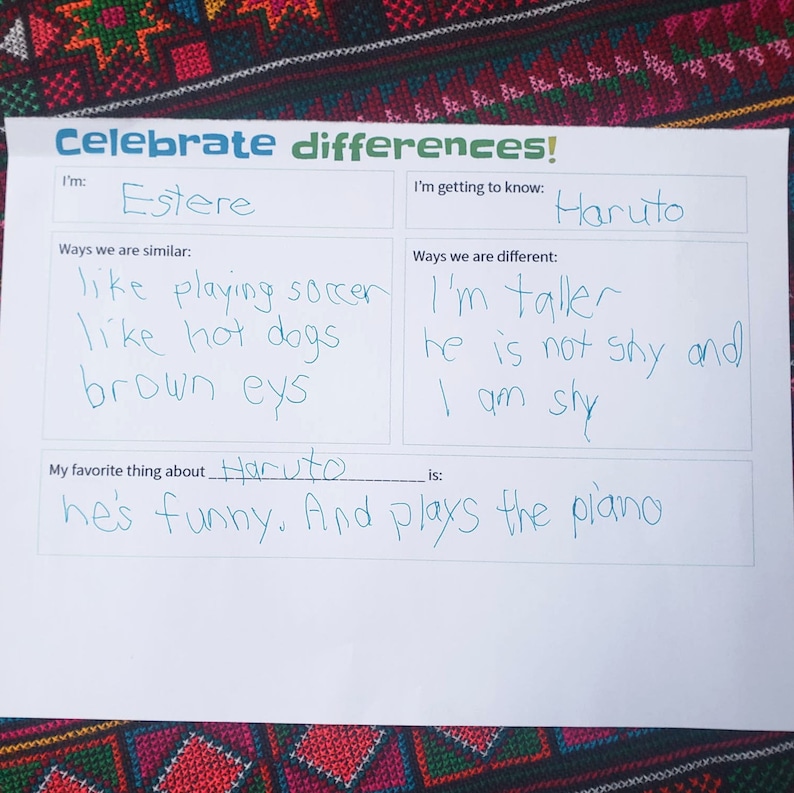 Celebrate differences!
I'm: Estere
I'm getting to know: Haruto
Ways we are similar:
like playing soccer
like hot dogs
brown eys
Ways we are different:
I'm taller
he is not shy and
I am shy
My favorite thing about Haruto is:
he's funny. And plays the piano